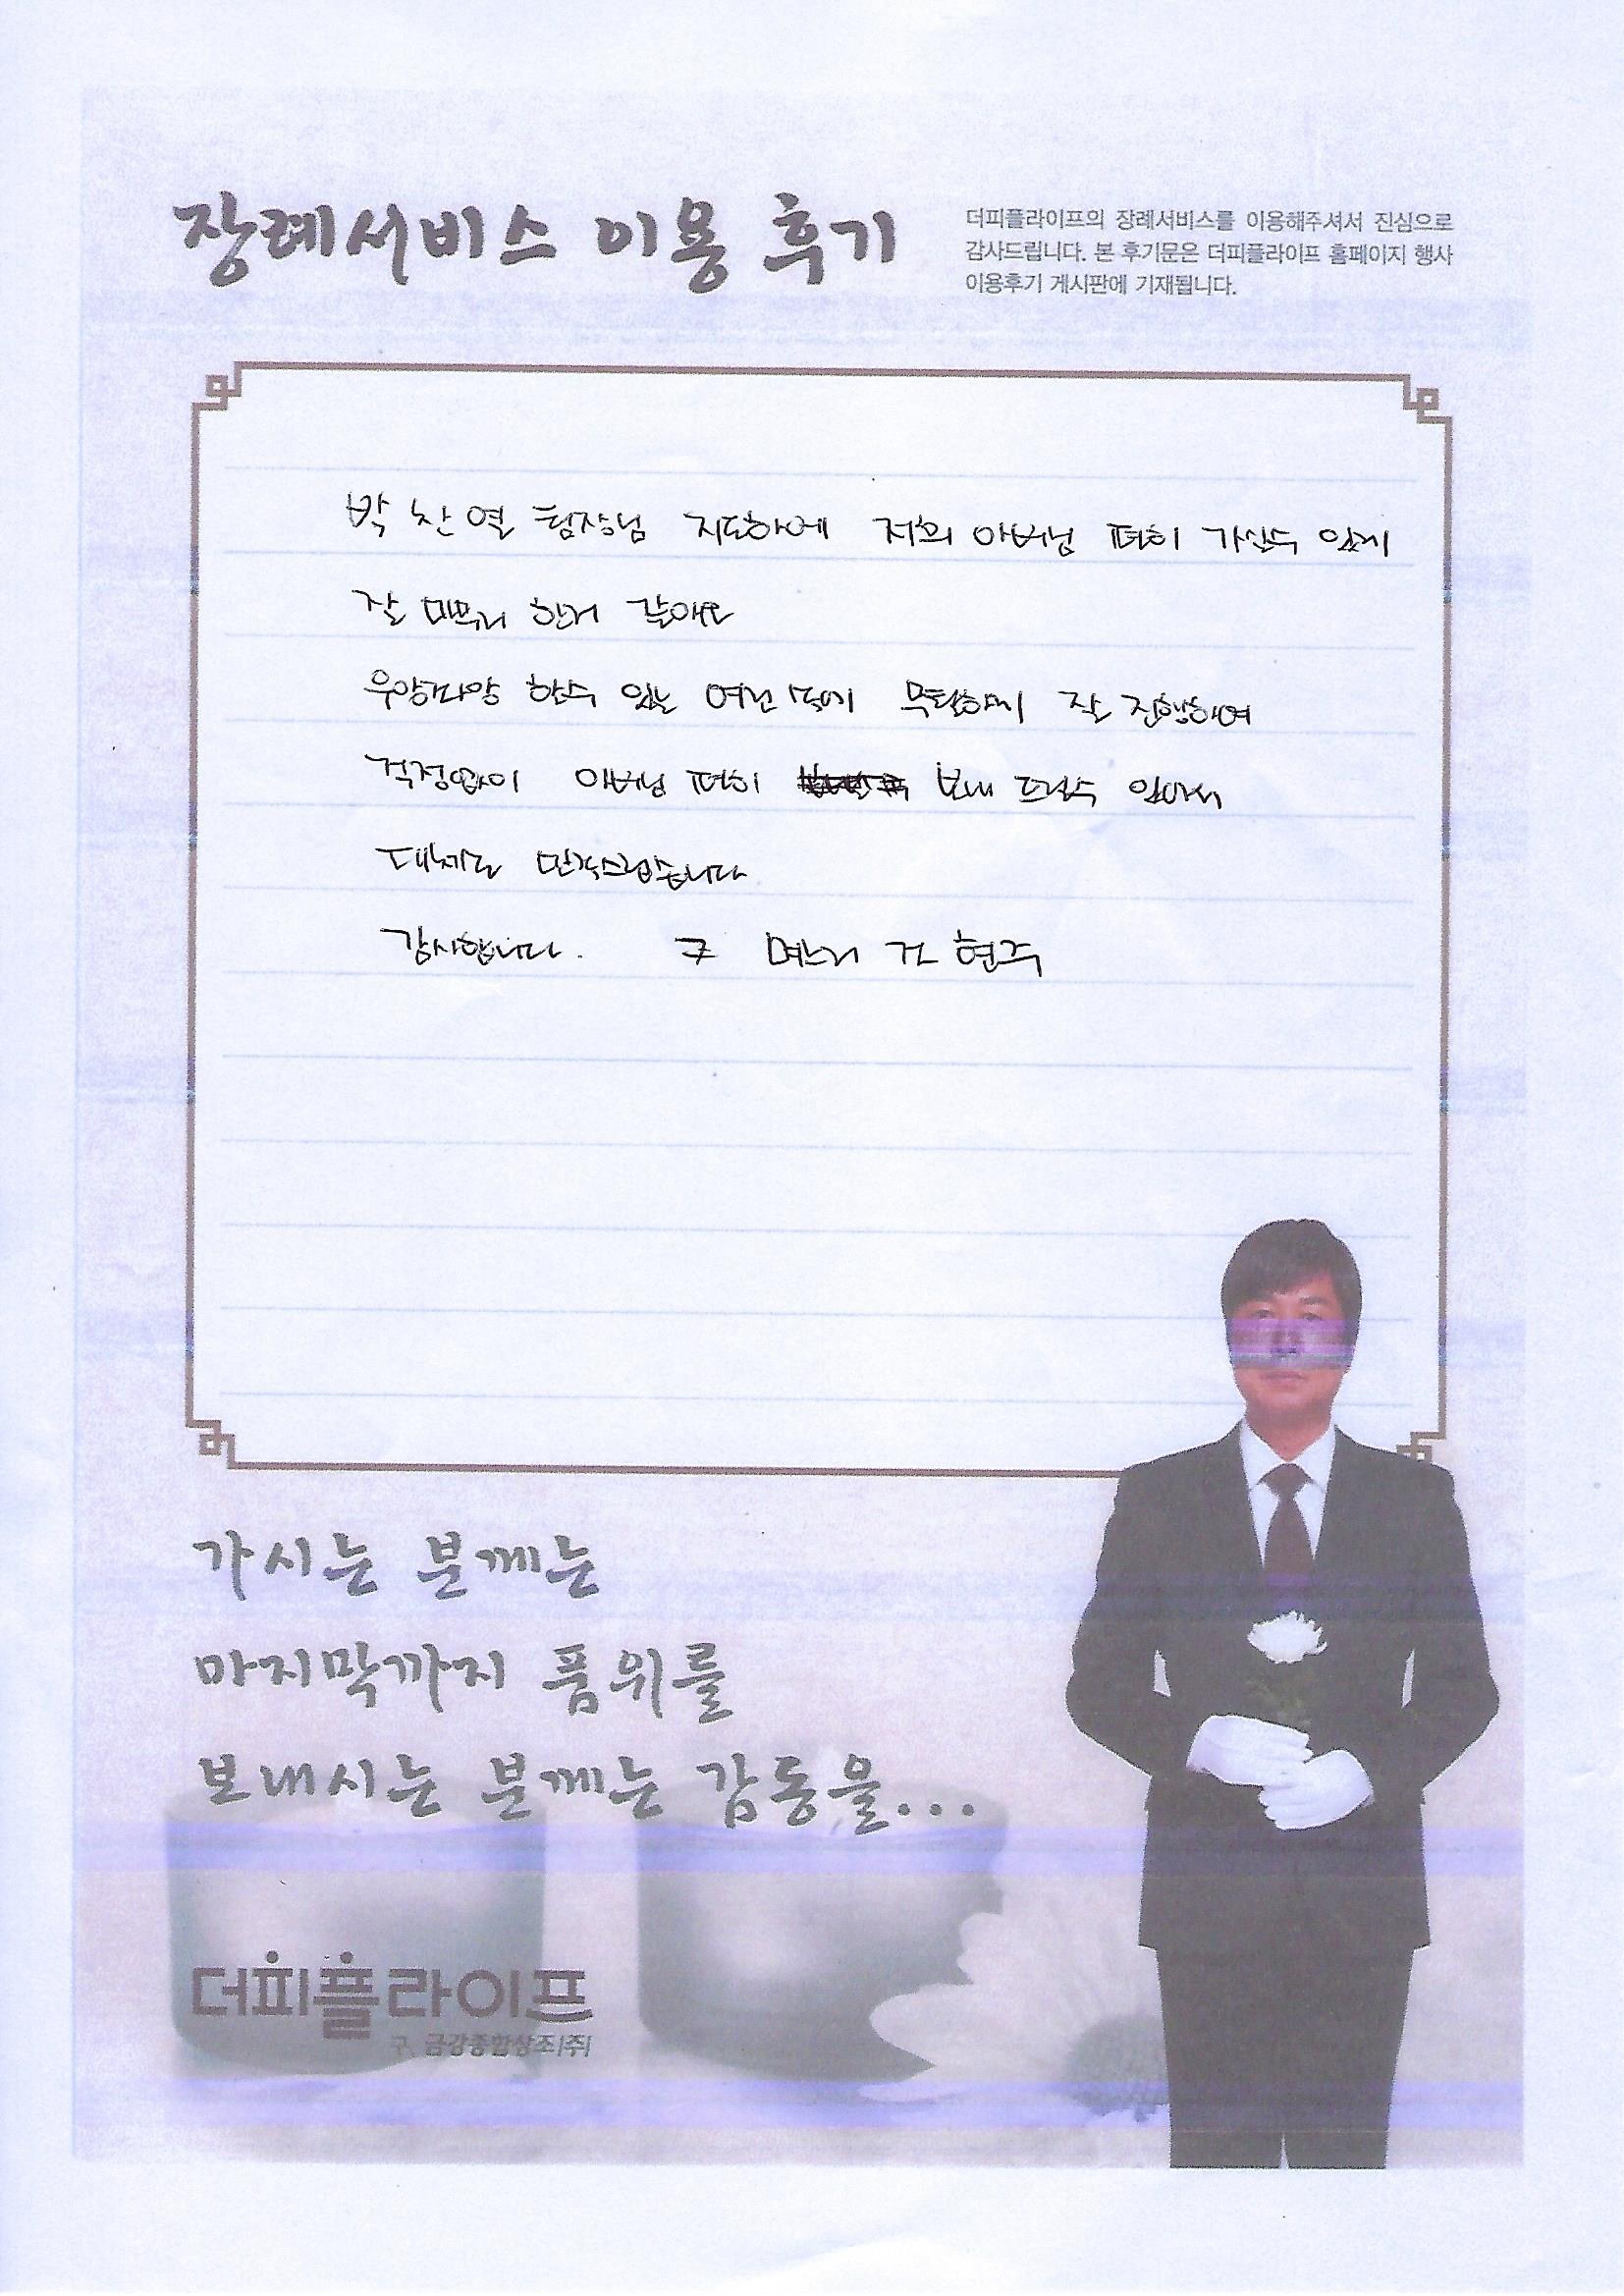 장례서비스 이용 후기
더피플라이프의 장례서비스를 이용해주셔서 진심으로
감사드립니다. 본 후기문은 더피플라이프 홈페이지 행사
이용후기 게시판에 기재됩니다.
박찬열 팀장님 지도하에 저희 아버님 편히 가실수 있게
잘 마무리 한거 같애요
우왕좌왕 할수 있는 여건속에 무탈하게 잘 진행하여
걱정없이 아버님 편히 보내 드릴수 있어서
대체로 만족스럽습니다
감사합니다. 며느리 현주
가시는 분께는
마지막까지 품위를
보내시는 분께는 감동을...
더피플라이프
구. 금강종합상조(주)